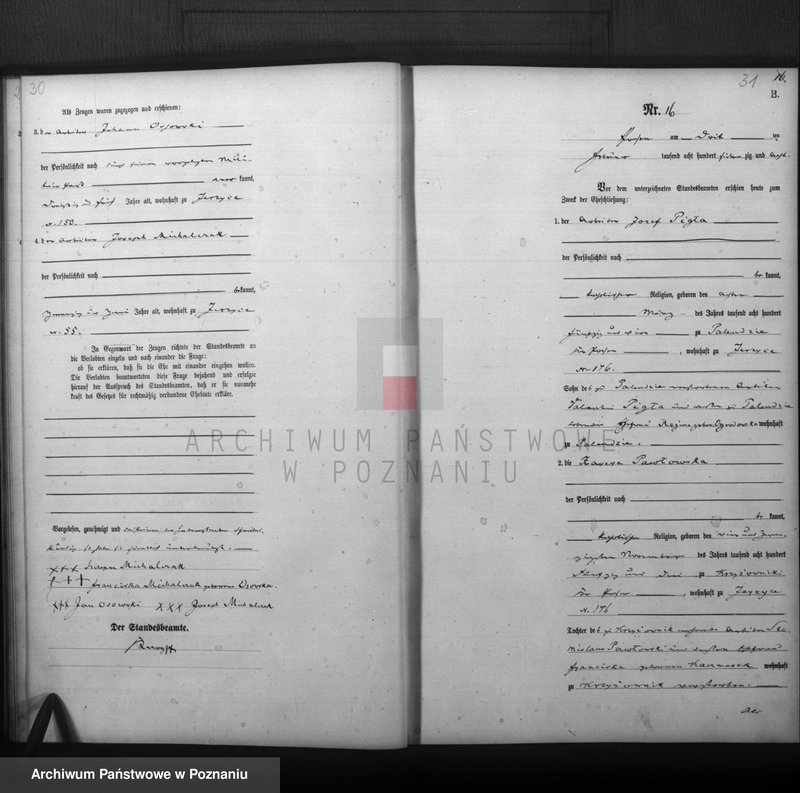 30
Als Zeugen waren zugezogen und erschienen:
3. der Arbeiter Johann Osowski
der Persönlichkeit nach
kannt,
Jahre alt, wohnhaft zu Jerzyce
N. 150.
4. der Arbeiter Joseph Michalczak
der Persönlichkeit nach
be kannt,
zwanzig und zwei Jahre alt, wohnhaft zu Jerzyce
N. 55.
In Gegenwart der Zeugen richtete der Standesbeamte an
die Verlobten einzeln und nach einander die Frage:
ob sie erklären, daß sie die Ehe mit einander eingehen wollen.
Die Verlobten beantworteten diese Frage bejahend und erfolgte
hierauf der Ausspruch des Standesbeamten, daß er sie nunmehr
kraft des Gesetzes für rechtmäßig verbundene Eheleute erkläre.
Vorgelesen, genehmigt und
+++ Michalczak
+++ Franciska Michalczak geborene Osowska.
+++ Jan Osowski +++ Joseph Michalczak
Der Standesbeamte.
31
16.
B.
Nr. 16
Posen am Drit ten
Februar tausend acht hundert siebenzig und acht.
Vor dem unterzeichneten Standesbeamten erschien heute zum
Zweck der Eheschließung:
1. der Arbeiter Josef Pigła
der Persönlichkeit nach
be kannt,
katholischer Religion, geboren den achten
März des Jahres tausend acht hundert
fünfzig und vier zu Palendzie
bei Posen, wohnhaft zu Jerzyce
N. 176.
Sohn des zu Palendzie verstorbenen Arbeiters
Valentin Pigła und dessen zu Palendzie
lebenden Ehefrau Regina geborene wohnhaft
zu Palendzie.
2. die Xavera Pawłowska
der Persönlichkeit nach
be kannt,
katholischer Religion, geboren den vier und zwan-
zigsten November des Jahres tausend acht hundert
fünfzig und drei zu Krzyżowniki
bei Posen, wohnhaft zu Jerzyce
N. 176
Tochter des zu Krzyżownik wohnenden Arbeiters Sta-
nislaus Pawłowski und dessen Ehefrau
Franciska geborenen Kaczmarek wohnhaft
zu Krzyżownik verstorben.
ARCHIWUM PAŃSTWOWE
W POZNANIU
Archiwum Państwowe w Poznaniu